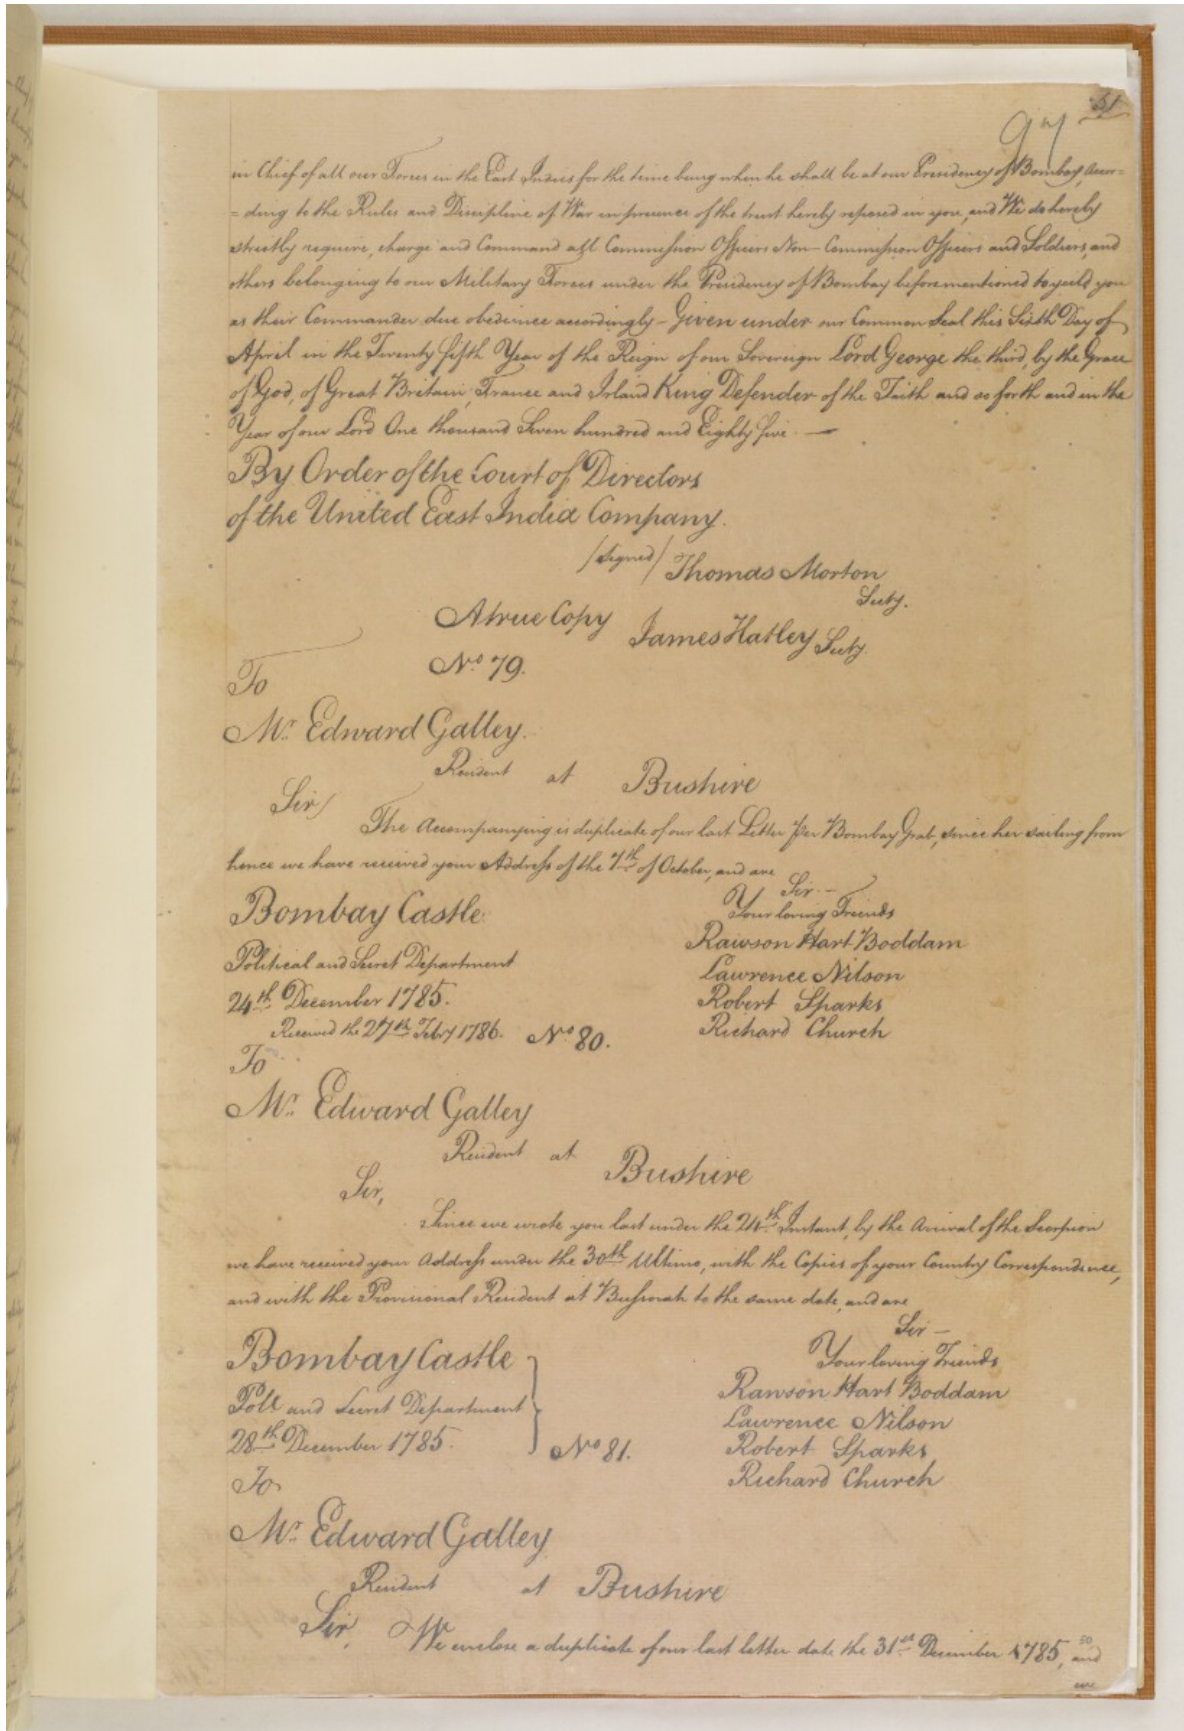 51
97
in Chief of all our Forces in the East Indies for the time being when he shall be at our Presidency of Bombay, Accor=
=ding to the Rules and Discipline of War in pursuance of the trust hereby reposed in you, and We do hereby
strictly require, charge and Command all Commission Officers Non-Commission Officers and Soldiers, and
others belonging to our Military Forces under the Presidency of Bombay beforementioned to yeild you
as their Commander due obedience accordingly – Given under our Common Seal this Sixth Day of
April in the Twenty fifth Year of the Reign of our Sovereign Lord George the third, by the Grace
of God, of Great Britain, France and Irland King Defender of the Faith and so forth and in the
Year of our Lord One thousand Seven hundred and Eighty five. —
By Order of the Court of Directors
of the United East India Company.
/Signed/ Thomas Morton
Secty.
A true Copy James Hatley Secty.
No 79.
To
Mr. Edward Galley.
Resident at Bushire
Sir/
The Accompanying is duplicate of our last Letter Per Bombay Grab, since her sailing from
hence we have received your Address of the 7th of October, and are
Sir. –
Your loving Friends
Bombay Castle
Rawson Hart Boddam
Political and Secret Department
Lawrence Nilson
24th December 1785.
Robert Sparks
Received the 27th Febry 1786. No 80.
Richard Church
To
Mr. Edward Galley
Resident at Bushire
Sir,
Since we wrote you last under the 24th Instant, by the Arrival of the Scorpion
we have received your Address under the 30th Ultimo, with the Copies of your Country Correspondence,
and with the Provisional Resident at Bussorah to the same date, and are
Sir –
Your loving Friends
Bombay Castle
Rawson Hart Boddam
Poll and Secret Department
Lawrence Nilson
28th December 1785.
No 81.
Robert Sparks
Richard Church
To
Mr. Edward Galley
Resident at Bushire
Sir, We enclose a duplicate of our last letter date the 31st December 1785, and
we